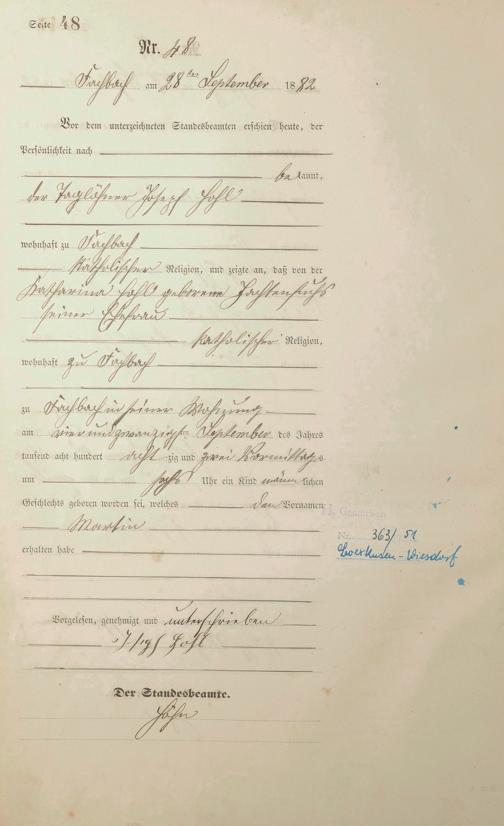 Seite 48
Nr. 48
Fachbach am 28ten September 1882
Vor dem unterzeichneten Standesbeamten erschien heute, der
Persönlichkeit nach
bekannt,
der Taglöhner Joseph Hohl
wohnhaft zu Fachbach
katholischer Religion, und zeigte an, daß von der
Katharina Hohl geborene
seiner Ehefrau
katholischer Religion,
wohnhaft zu Fachbach
zu Fachbach in seiner Wohnung
am vierundzwanzigsten September des Jahres
tausend acht hundert achtzig und zwei Vormittags
um sechs Uhr ein Kind männlichen
Geschlechts geboren worden sei, welches den Vornamen
Martin
erhalten habe
Vorgelesen, genehmigt und unterschrieben
Joseph Hohl
Der Standesbeamte.
Höhn
Nr. 363/51
Leverkusen-Wiesdorf